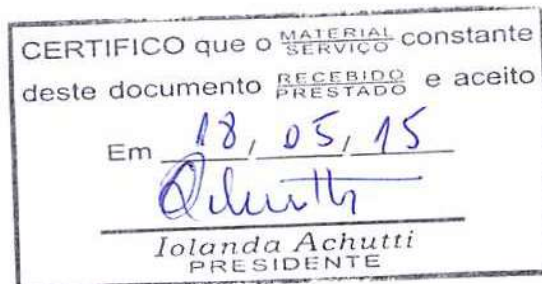 CERTIFICO que o MATERIAL SERVIÇO constante
deste documento RECEBIDO PRESTADO e aceito
Em 18, 05, 15
Iolanda Achutti
PRESIDENTE